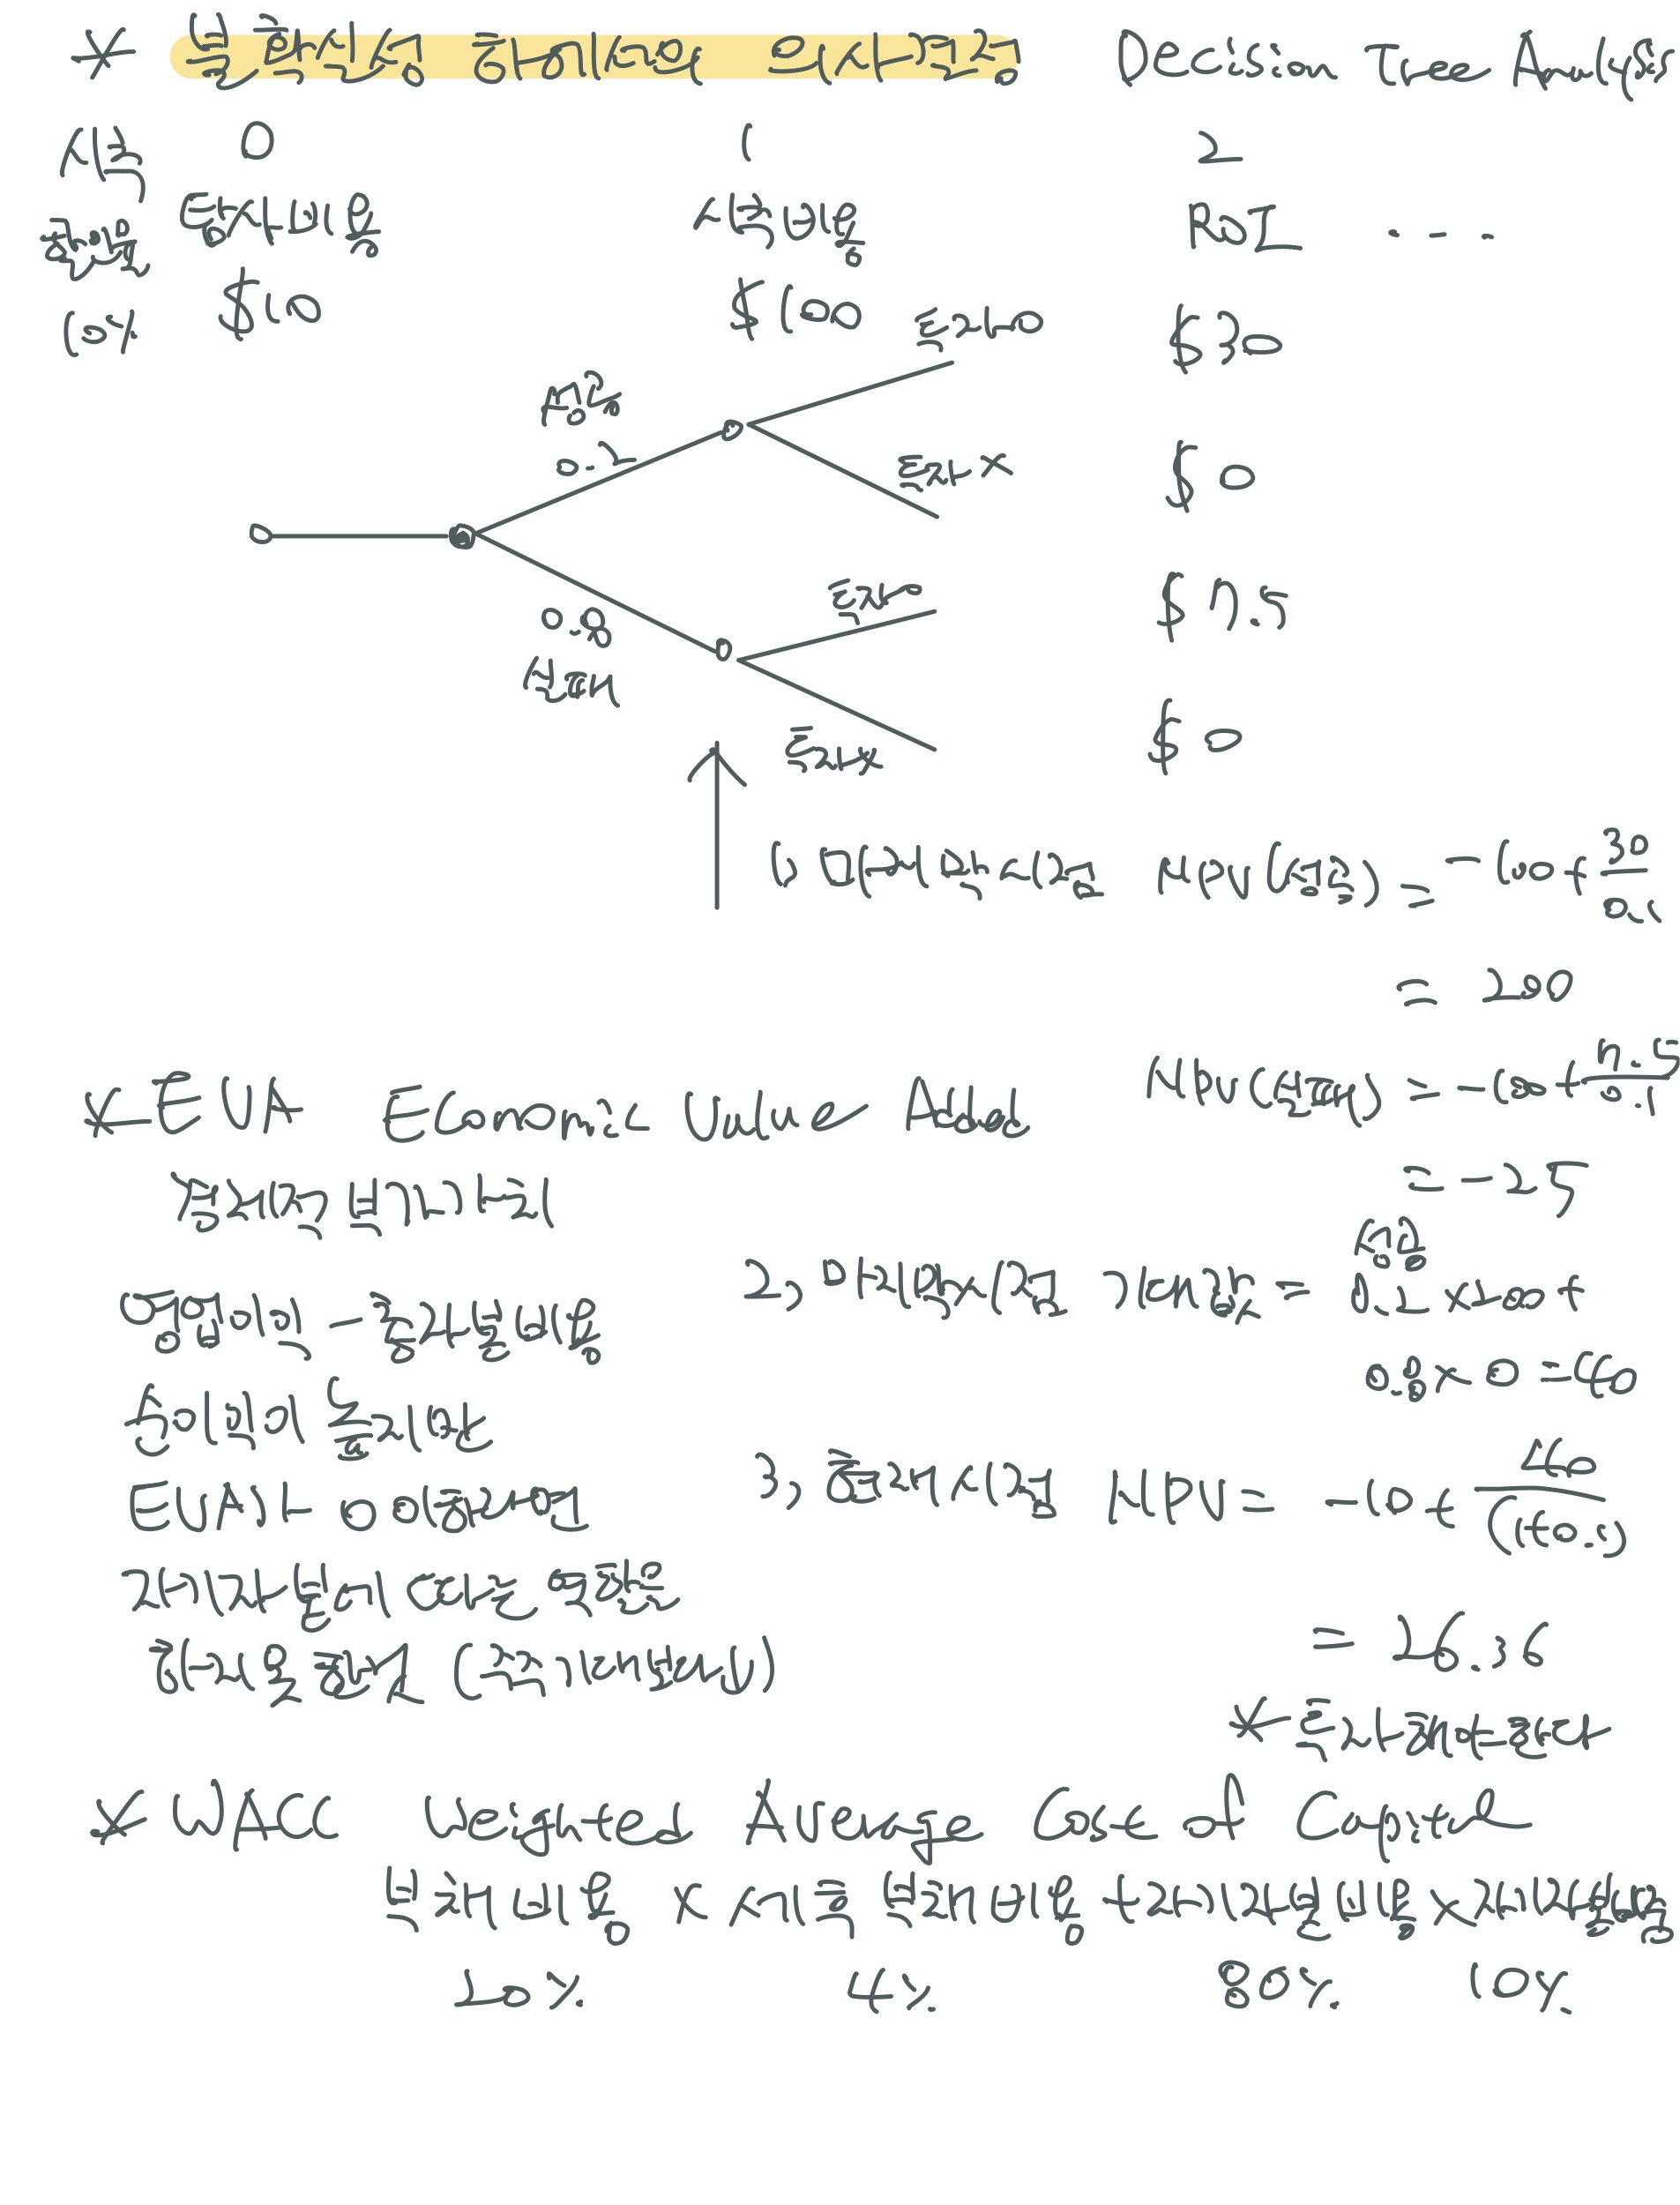 * 불확실성하에서의 의사결정 Decision Tree Analysis
시점 0 1 2
할인율 탐사비용 시추비용 ROI ...
10% $10 $100 $30
투자O
성공
0.2
투자X $0
투자O $7.5
0.8
실패
투자X $0
1) 미래시점에서 NPV(성공) = -100+30/0.1
= 200
NPV(실패) = -100+7.5/0.1
= -25
* EVA Economic Value Added
경제적 부가가치
영업이익 - 총자본비용
순이익이 높지만
EVA가 00할수있어
기업가치
2) 미래시점 기대값 = 0.2 x 200 +
성공
0.8 x 0 = 40
3) 현재시점 NPV = -10 + 40/(1+0.1)
= 26.36
* 투자해야한다
* WACC Weighted Average Cost of Capital
부채비율 x 세후 부채비용 + 자기자본비율 x 자기자본비용
20% 4% 80% 10%